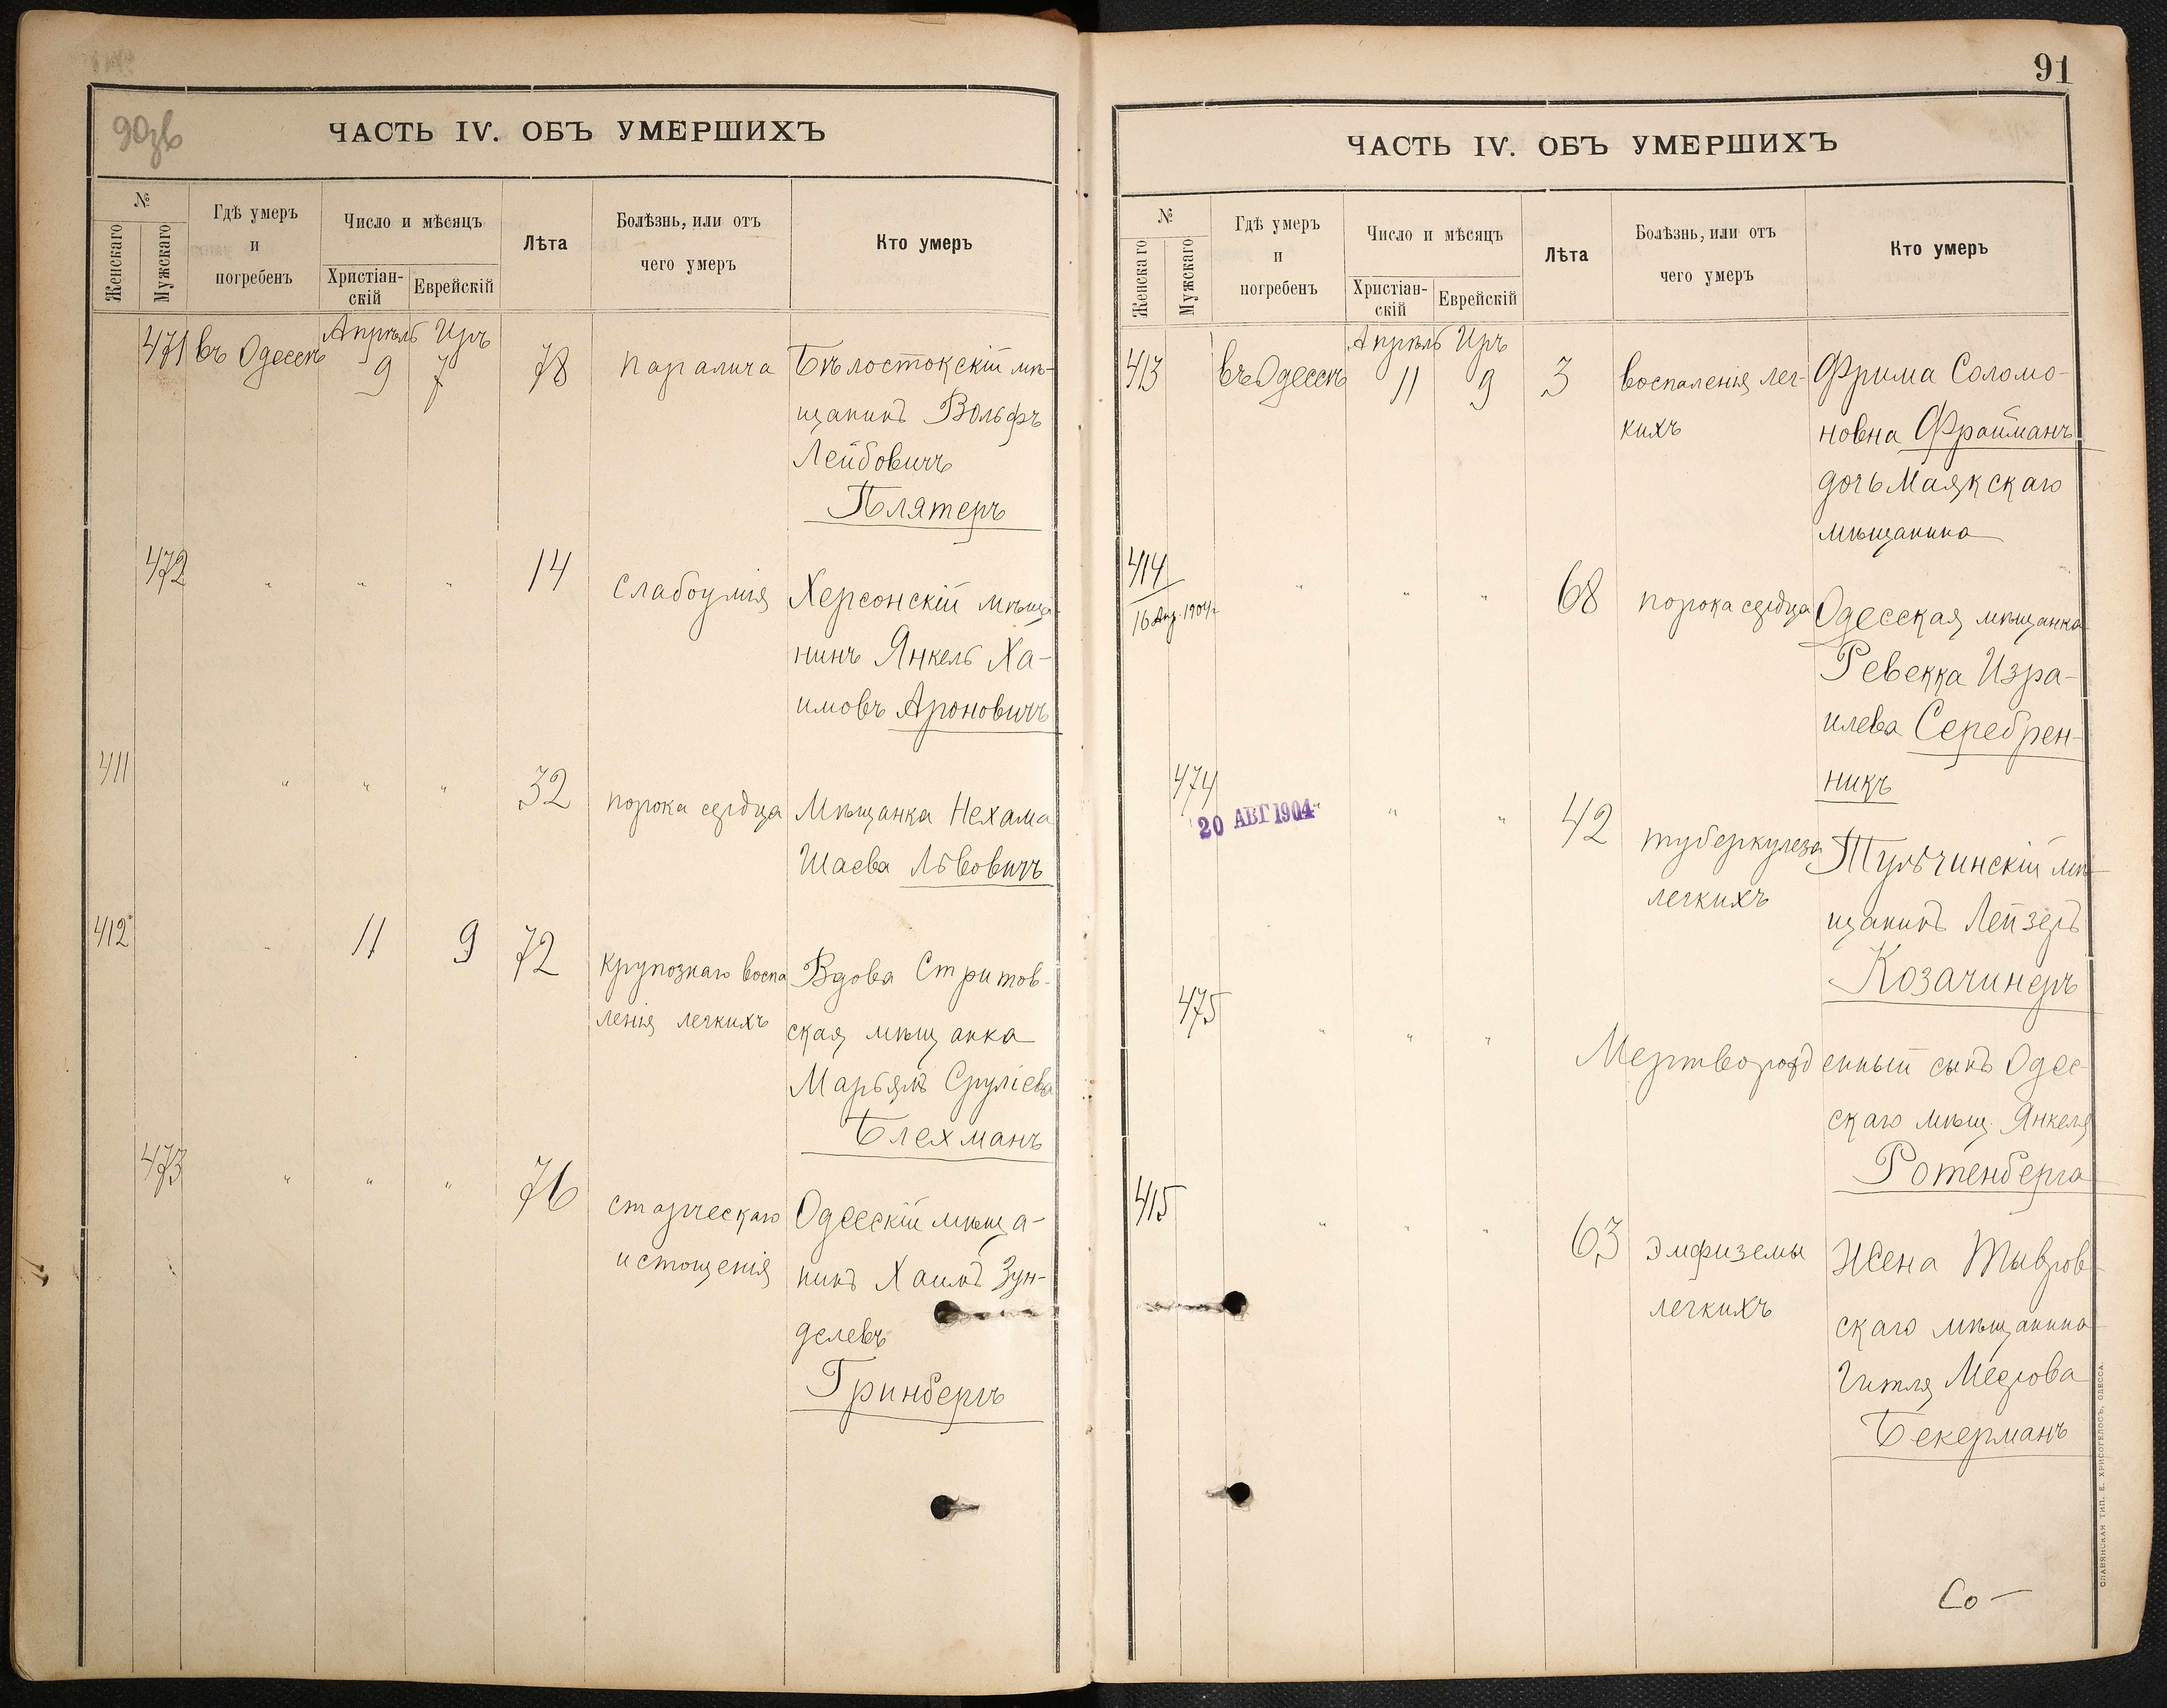 90зв
ЧАСТЬ IV. ОБЪ УМЕРШИХЪ
№
Женскаго
Мужскаго
Гдѣ умеръ
и
погребенъ
Число и мѣсяцъ
Христіан-
скій
Еврейскій
Лѣта
Болѣзнь, или отъ
чего умеръ
Кто умеръ
Апрѣль Иръ
471 въ Одессѣ 9 7 78 паралича Бѣлостокскій мѣ-
щанинъ Вольфъ
Лейбовичъ
Плятеръ
472 " " " 14 слабоумія Херсонскій мѣща-
нинъ Янкель Ха-
имовъ Ароновичъ
411 " " " 32 порока сердца Мѣщанка Нехама
Шаева Львовичъ
412 " 11 9 72 крупознаго воспа Вдова Стритов-
ленія легкихъ ская мѣщанка
Марьямъ Сруліева
Блехманъ
473 " " " 76 старческаго Одесскій мѣща-
истощенія нинъ Хаимъ Зун-
делевъ
Гринбергъ
91
ЧАСТЬ IV. ОБЪ УМЕРШИХЪ
№
Женскаго
Мужскаго
Гдѣ умеръ
и
погребенъ
Число и мѣсяцъ
Христіан-
скій
Еврейскій
Лѣта
Болѣзнь, или отъ
чего умеръ
Кто умеръ
Апрѣль Иръ
413 въ Одессѣ 11 9 3 воспаленія лег- Фрима Соломо-
кихъ новна Фрайманъ
дочь Маякскаго
мѣщанина
414 " " " 68 порока сердца Одесская мѣщанка
16 Апр. 1904 г
Ревекка Изра-
илева Серебрен-
никъ
474 " " " 42 туберкулеза Тульчинскій мѣ-
20 АВГ 1904
легкихъ щанинъ Лейзеръ
Козачинеръ
475 " " " Мертворожденный сынъ Одес-
скаго мѣщ. Янкеля
Ротенберга
415 " " " 63 эмфиземы Жена Тывров-
легкихъ скаго мѣщанина
Гитля Меерова
Бекерманъ
Со-
СЛАВЯНСКАЯ ТИП. Е. ХРИСОГЕЛОСЪ, ОДЕССА.